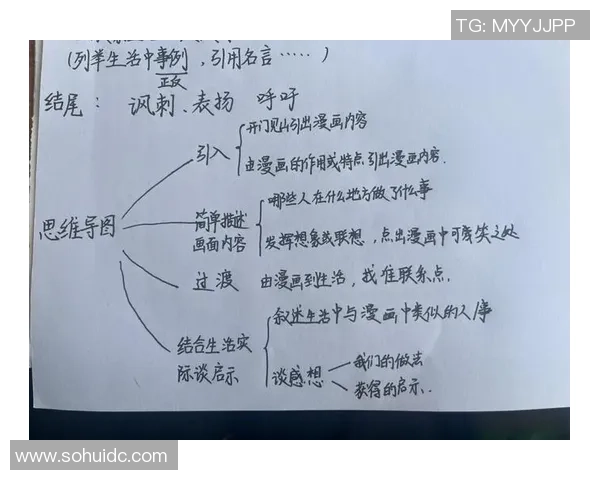 TG: MYYJJPP
(列举生活中事例，引用名言……)
正反
结尾： 讽刺、表扬 呼吁
开门见山引出漫画内容
引入
由漫画的作用或特点引出漫画内容.
哪些人在什么地方做了什么事
简单描述
画面内容
发挥想象或联想，点出漫画中可笑之处
思维导图
过渡 由漫画到生活，找准联系点.
叙述生活中与漫画中类似的人事
结合生活实
际谈启示
谈感想
我们的做法
获得的启示.
www.sohuidc.com